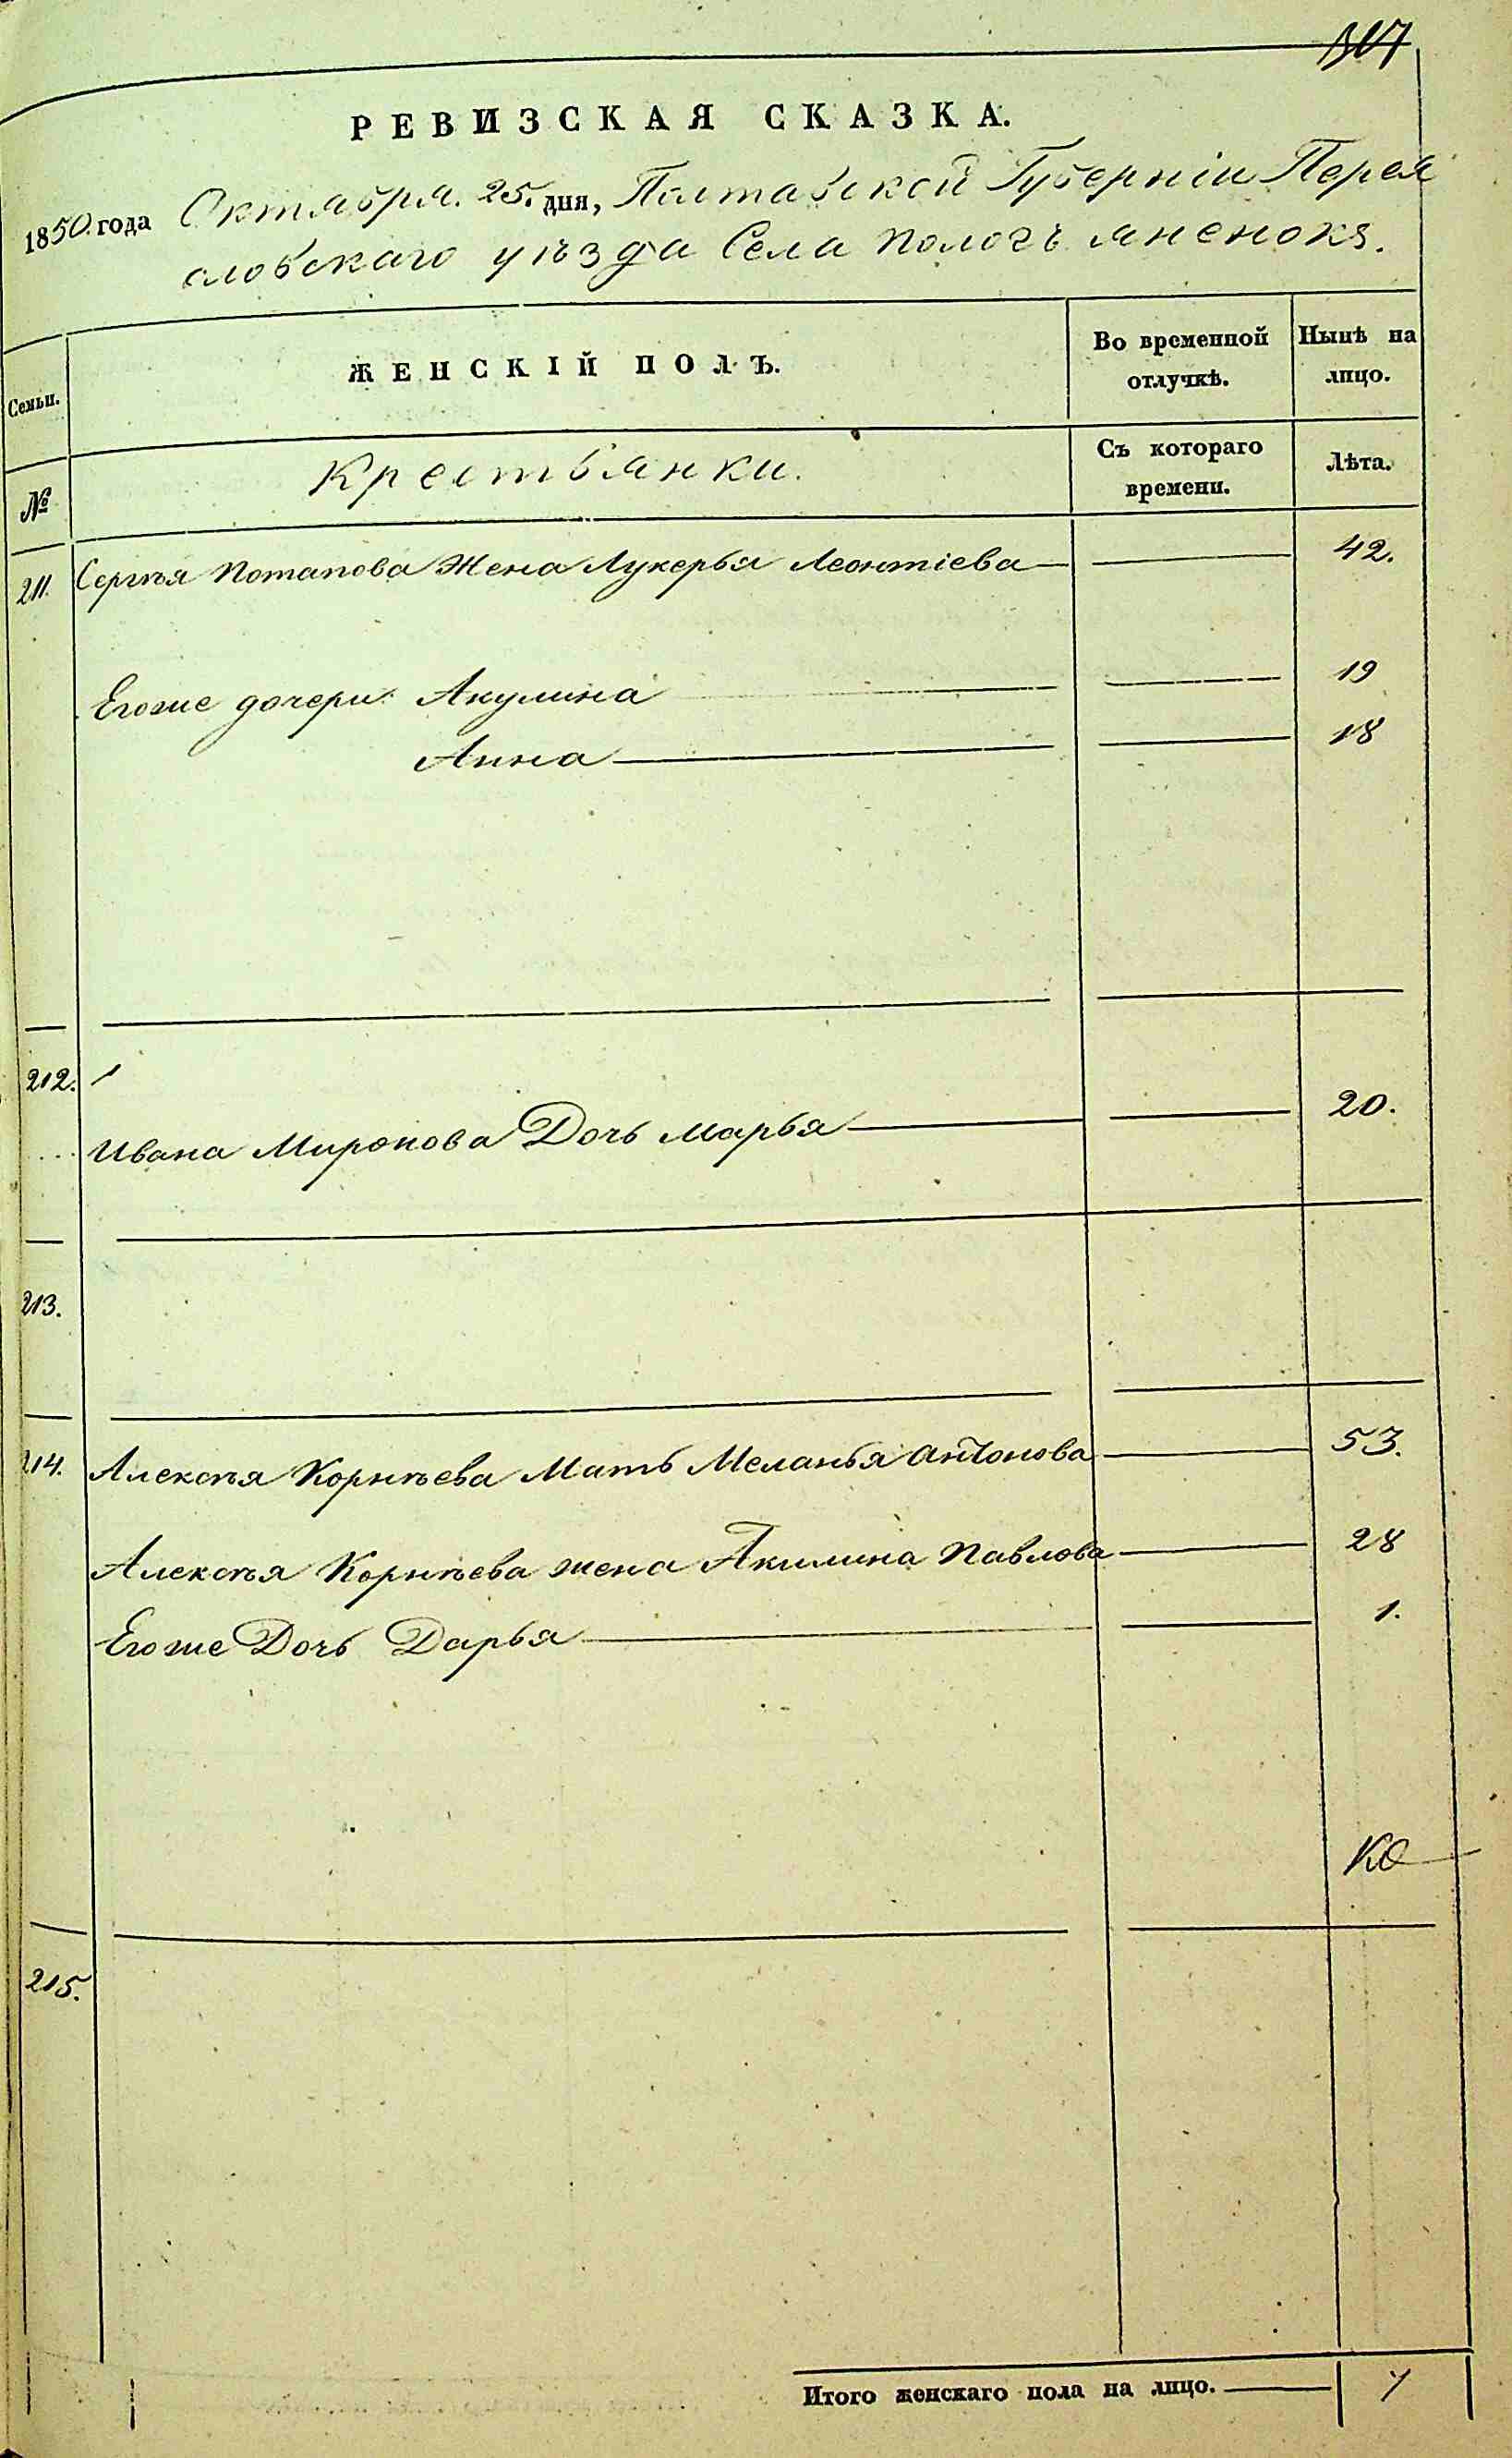 РЕВИЗСКАЯ СКАЗКА.
1850. года Октября. 25. дня, Полтавской Губерніи Перея
словскаго уѣзда Села Пологъ яненокъ.
Семьи.
ЖЕНСКІЙ ПОЛЪ.
Во временной отлучкѣ.
Нынѣ на лицо.
№
Крестьянки.
Съ котораго времени.
Лѣта.
211. Сергѣя Потапова Жена Лукерья Леонтіева 42.
Егоже дочери Акулина 19
Анна 18
212.
Ивана Миронова Дочь Марья 20.
213.
214. Алексѣя Корнѣева Мать Меланья Антонова 53.
Алексѣя Корнѣева жена Акилина Павлова 28
Егоже Дочь Дарья 1.
215.
Итого женскаго пола на лицо. 7